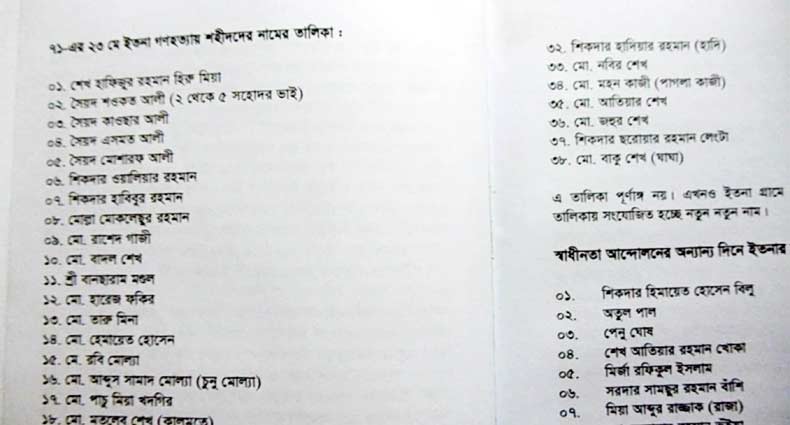 ৭১-এর ২৩ মে ইতনা গণহত্যায় শহীদদের নামের তালিকা :
০১. শেখ হাফিজুর রহমান হিরু মিয়া
০২. সৈয়দ শওকত আলী (২ থেকে ৫ সহোদর ভাই)
০৩. সৈয়দ কাওছার আলী
০৪. সৈয়দ এসমত আলী
০৫. সৈয়দ মোশাররফ আলী
০৬. শিকদার ওয়ালিয়ার রহমান
০৭. শিকদার হাবিবুর রহমান
০৮. মোল্লা মোকলেছুর রহমান
০৯. মো. রাশেদ গাজী
১০. মো. বাদল শেখ
১১. শ্রী বানছারাম মণ্ডল
১২. মো. হারেজ ফকির
১৩. মো. তারু মিনা
১৪. মো. হেমায়েত হোসেন
১৫. মে. রবি মোল্যা
১৬. মো. আব্দুস সামাদ মোল্যা (চুনু মোল্যা)
১৭. মো. পাচু মিয়া খদগির
১৮. মো. মতলেব শেখ
৩২. শিকদার হাদিয়ার রহমান (হাদি)
৩৩. মো. নবির শেখ
৩৪. মো. মহন কাজী (পাগলা কাজী)
৩৫. মো. আতিয়ার শেখ
৩৬. মো. জহুর শেখ
৩৭. শিকদার ছরোয়ার রহমান লেংটা
৩৮. মো. বাকু শেখ (ঘাঘা)
এ তালিকা পূর্ণাঙ্গ নয়। এখনও ইতনা গ্রামে
তালিকায় সংযোজিত হচ্ছে নতুন নতুন নাম।
স্বাধীনতা আন্দোলনের অন্যান্য দিনে ইতনার
০১. শিকদার হিমায়েত হোসেন বিলু
০২. অতুল পাল
০৩. পেনু ঘোষ
০৪. শেখ আতিয়ার রহমান খোকা
০৫. মির্জা রফিকুল ইসলাম
০৬. সরদার সামছুর রহমান বাঁশি
০৭. মিয়া আব্দুর রাজ্জাক (রাজা)